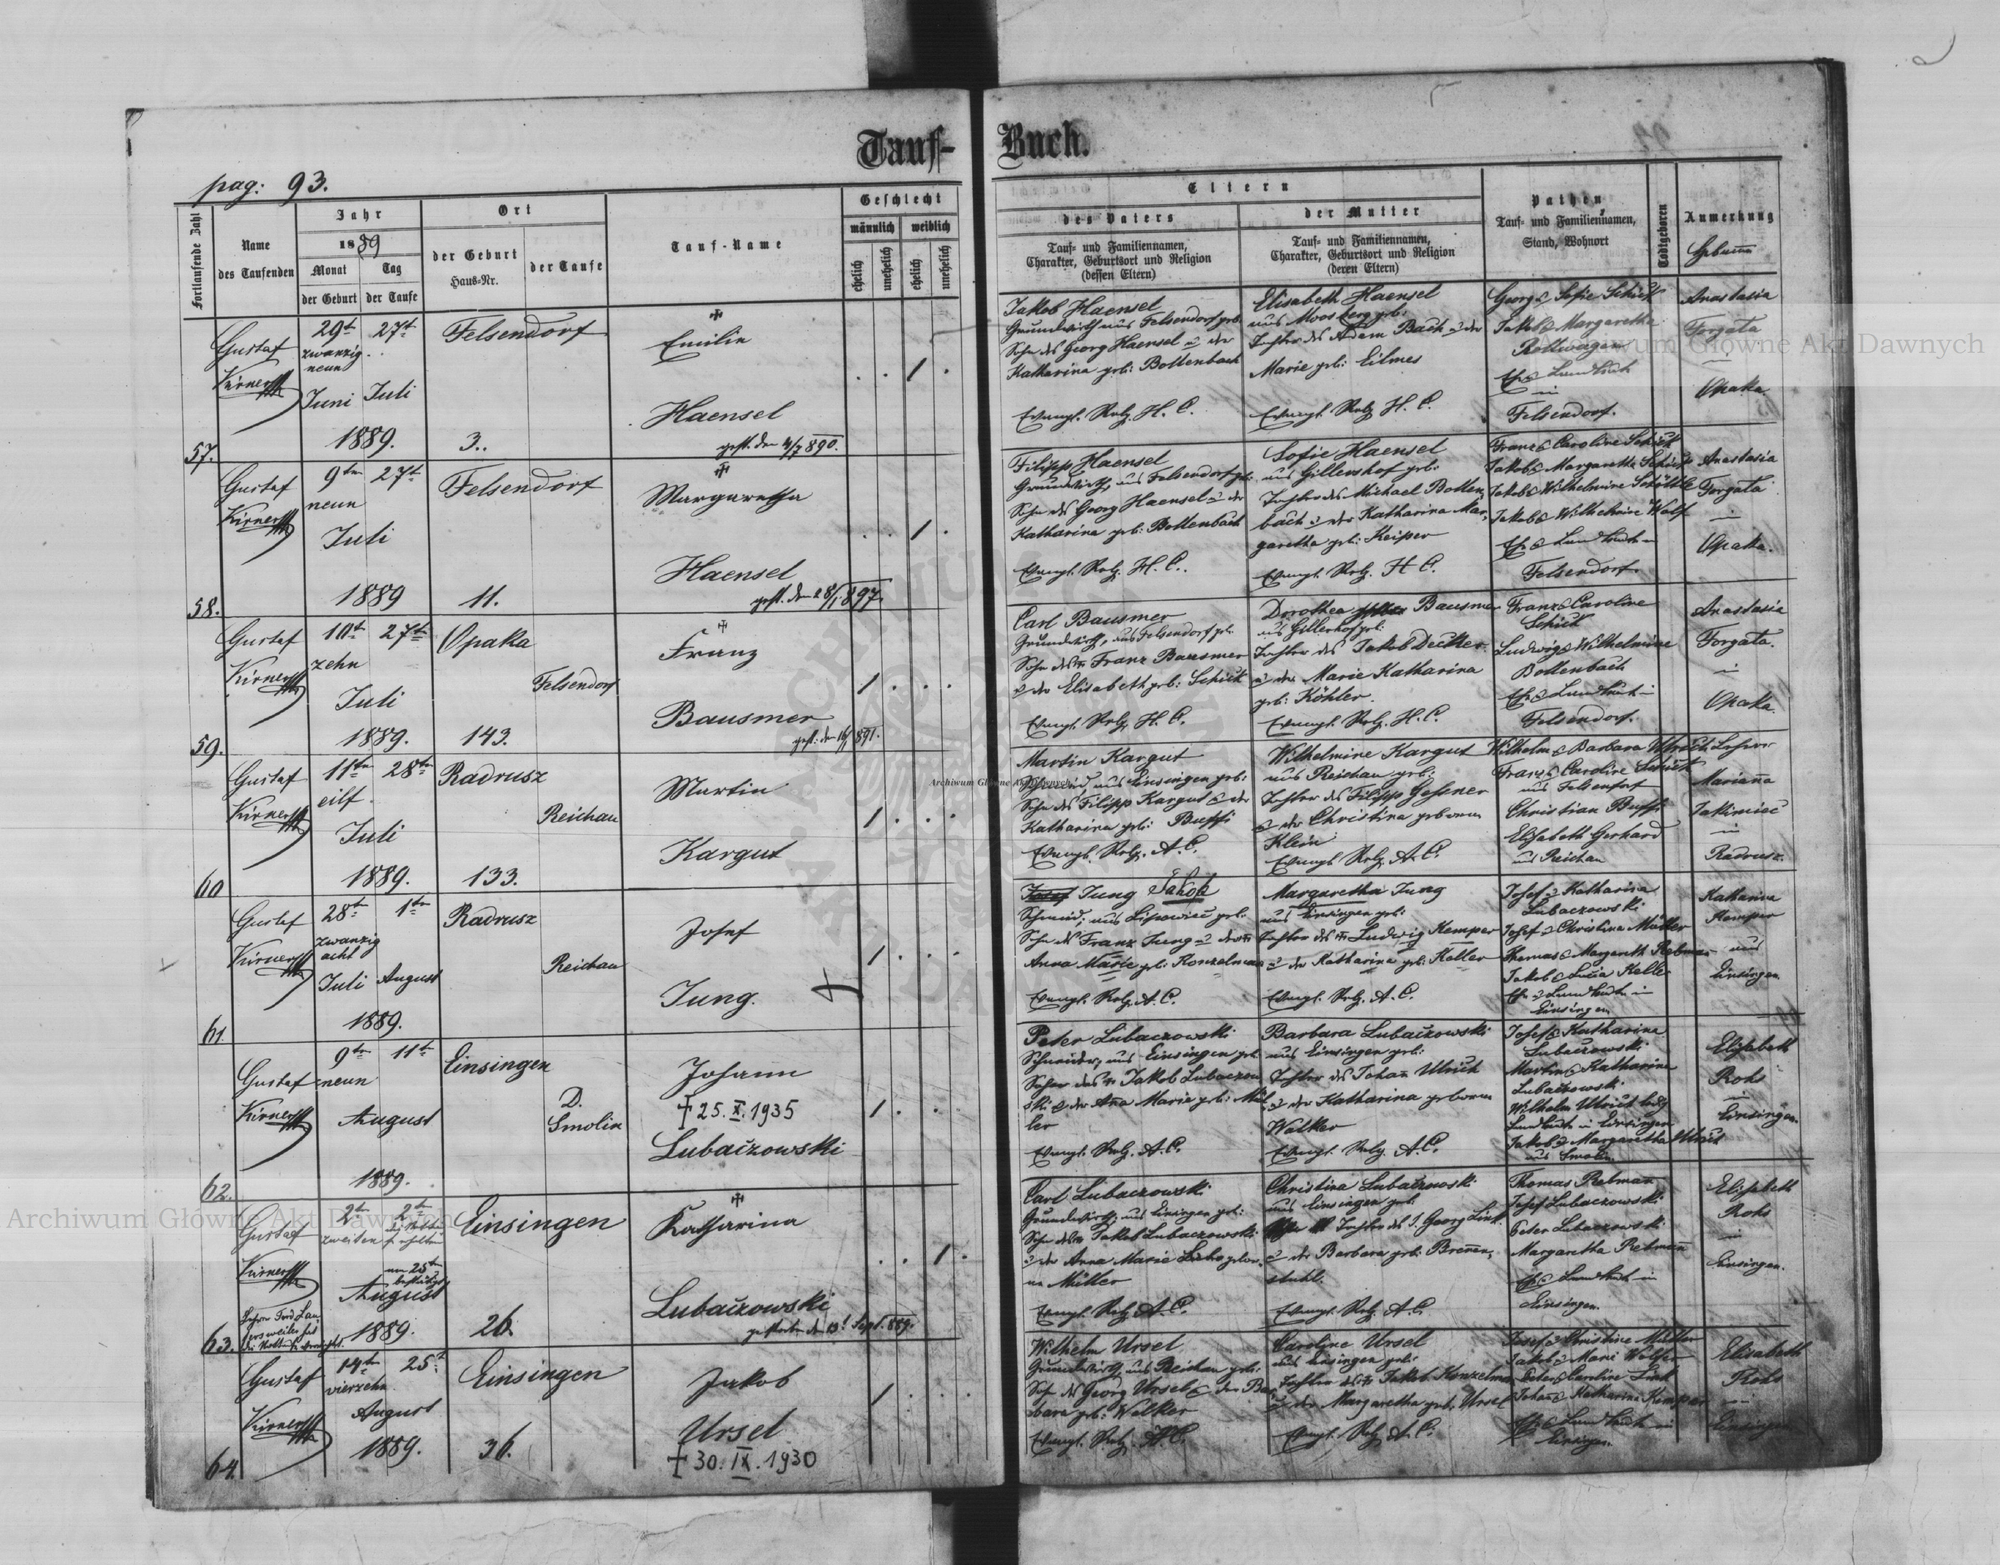 Tauf-Buch.
pag: 93.
Fortlaufende Zahl
Name des Taufenden
Jahr
1889
Monat
Tag
der Geburt
der Taufe
Ort
der Geburt
Haus-Nr.
der Taufe
Tauf-Name
Geschlecht
männlich
weiblich
ehelich
unehelich
ehelich
unehelich
Eltern
des Vaters
Tauf- und Familiennamen,
Charakter, Geburtsort und Religion
(dessen Eltern)
der Mutter
Tauf- und Familiennamen,
Charakter, Geburtsort und Religion
(deren Eltern)
Pathen
Tauf- und Familiennamen,
Stand, Wohnort
Todtgeboren
Anmerkung
57.
Gustaf
Kirner
29t 27t
zwanzig
neun
Juni Juli
1889.
Felsendorf
3.
Emilie
Haensel
gest. den 4/7 890.
Jakob Haensel
Grundwirth aus Felsendorf geb.
Sohn des Georg Haensel u der
Katharina geb: Bottenbach
Evangl. Relg. H. C.
Elisabeth Haensel
aus Moosberg geb:
Tochter des Adam Bach u der
Marie geb: Eilmes
Evangl. Relg. H. C.
Georg & Sofie Schick
Jakob & Margaretha
Rottwagen
Felsendorf.
Anastasia
Forgata
Opaka
58.
Gustaf
Kirner
9tn 27t
neun
Juli
1889
Felsendorf
11.
Margaretha
Haensel
gest. den 28/1 897.
Filipp Haensel
Grundwirth, aus Felsendorf geb:
Sohn des Georg Haensel u der
Katharina geb: Bottenbach
Evangl. Relg. H. C.
Sofie Haensel
aus Gillershof geb:
Tochter des Michael Botten
bach u der Katharina Mar,
garetha geb: Keiper
Evangl. Relg. H C.
Franz & Caroline Schick
Jakob & Margaretha Schick
Jakob & Wilhelmine
Jakob & Wilhelmine Wolf
Felsendorf.
Anastasia
Forgata
Opaka.
59.
Gustaf
Kirner
10t 27tn
zehn
Juli
1889.
Opaka
Felsendorf
143.
Franz
Bausmer
Carl Bausmer
Grundwirth, aus Felsendorf geb.
Sohn des Franz Bausmer
u der Elisabeth geb: Schick
Evangl. Relg. H. C.
Dorothea Bausmer
aus Gillershof geb:
Tochter des Jakob Decker
u der Marie Katharina
geb: Köhler.
Evangl. Relg. H. C.
Franz & Caroline
Schick
Ludwig & Wilhelmine
Bottenbach
Felsendorf.
Anastasia
Forgata.
Opaka.
60
Gustaf
Kirner
11tn 28tn
eilf.
Juli
1889.
Radrusz
Reichau
133.
Martin
Kargut
Martin Kargut
aus Einsingen geb:
Sohn des Filipp Kargut u der
Katharina geb: Buffi
Evangl. Relg. A. C.
Wilhelmine Kargut
aus Reichau geb:
Tochter des Filipp Gessner
u der Christina geboren
Klein
Evangl. Relg. A. C.
Wilhelm & Barbara Ulrich, Lehrer
Franz & Caroline Schick
aus Felsendorf
Christian Buffi
Elisabeth Gerhard
aus Reichau
Marianna
Jakimiec
in
Radrusz.
61
Gustaf
Kirner
28t 1tn
zwanzig
acht
Juli August
1889.
Radrusz
Reichau
Josef
Jung.
Josef Jung Jakob
Schmied, aus Lipowiec geb.
Sohn des Franz Jung u der
Anna Marie geb: Konzelman
Evangl. Relg. A. C.
Margaretha Jung
aus Einsingen geb:
Tochter des Ludwig Kemper
u der Katharina geb: Koller
Evangl. Relg. A. C.
Josef & Katharina
Lubaczowski
Josef & Christina Müller
Thomas & Margareth Rebman
Einsingen
Katharina
Kemper
aus
Einsingen
62.
Gustaf
Kirner
9tn 11tn
neun
August
1889.
Einsingen
D.
Smolin
Johann
† 25. X. 1935
Lubaczowski
Peter Lubaczowski
Schneider, aus Einsingen geb
Sohn des Jakob Lubaczow
ski u der Anna Marie geb: Mül
ler
Evangl. Relg. A. C.
Barbara Lubaczowski
aus Einsingen geb:
Tochter des Johan Ulrich
u der Katharina geboren
Walker
Evangl. Relg. A. C.
Josef & Katharina
Lubaczowski
Martin & Katharina
Lubaczowski
Wilhelm Ulrich ledig
Landleute in Einsingen
Jakob & Margaretha Ulrich
aus Smolin.
Elisabeth
Rohs
Einsingen.
63.
Gustaf
Kirner
2t 2tn
zweiten
am 25tn
August
1889.
Einsingen
26.
Katharina
Lubaczowski
gestorben den 13t Sept. 889.
Carl Lubaczowski
Grundwirth, aus Einsingen geb:
Sohn des Jakob Lubaczowski
u der Anna Marie gebor,
ne Müller
Evangl. Relg. A. C.
Christina Lubaczowski
aus Einsingen geb
Tochter des J. Georg Link
u der Barbara geb: Brennen,
stuhl.
Evangl. Relg. A. C.
Thomas Rebman
Josef Lubaczowski
Peter Lubaczowski
Margaretha Rebman
Einsingen.
Elisabeth
Rohs
in
Einsingen.
64.
Gustaf
Kirner
14tn 25t
vierzehn
August
1889.
Einsingen
36.
Jakob
Ursel
† 30. IX. 1930
Wilhelm Ursel
Grundwirth, aus Reichau geb:
Sohn des Georg Ursel u der Bar
bara geb: Walker
Evangl. Relg. A. C.
Caroline Ursel
aus Einsingen geb:
Tochter des Jakob Konzelman
u der Margaretha geb. Ursel
Evangl. Relg. A. C.
Josef & Christine Müller
Peter & Caroline Link
Johann & Katharina Kemper
Einsingen.
Elisabeth
Rohs
Einsingen
Archiwum Główne Akt Dawnych
Archiwum Główne Akt Dawnych
Archiwum Główne Akt Dawnych